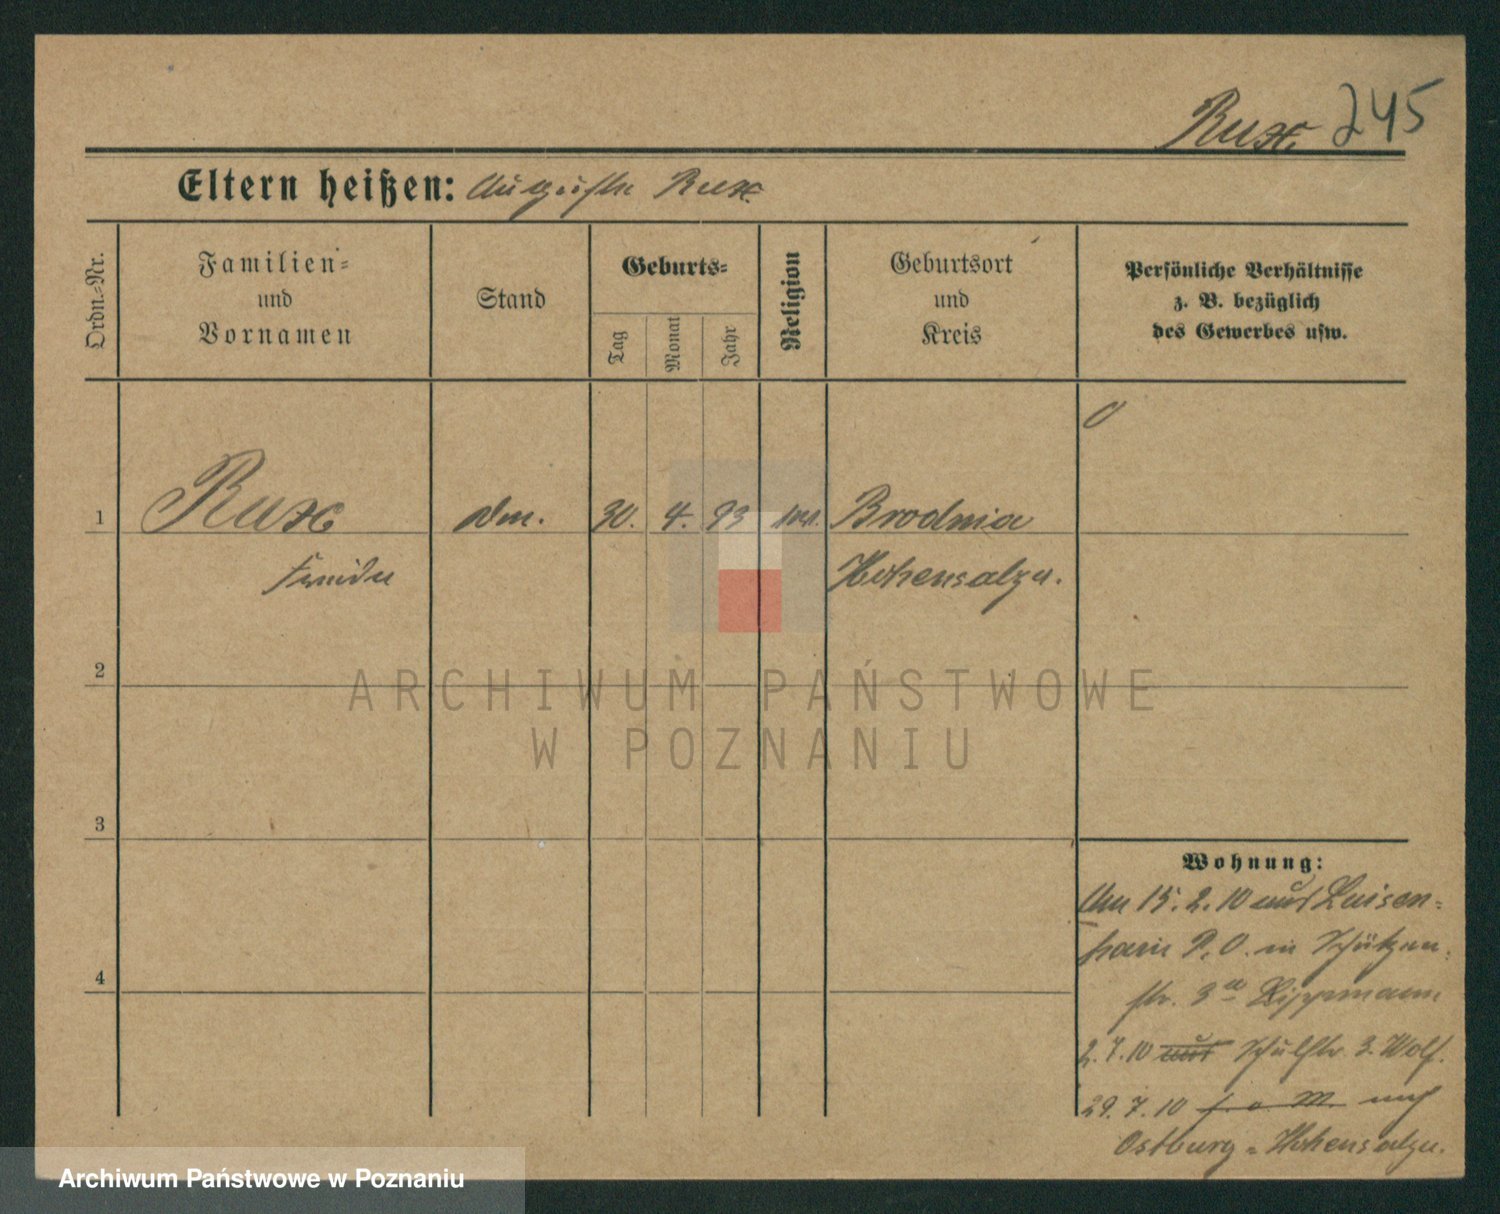 Rux. 245
Eltern heißen: Auguste Rux.
Ordn.-Nr.
Familien-
und
Vornamen
Stand
Geburts-
Tag
Monat
Jahr
Religion
Geburtsort
und
Kreis
Persönliche Verhältnisse
z. B. bezüglich
des Gewerbes usw.
0
1
Rux
30. 4. 93
Brodnia
Frieda
Hohensalza.
2
ARCHIWUM PAŃSTWOWE
W POZNANIU
3
Wohnung:
Am 15. 2. 10 aus Luisen-
hain P. O. in Schützen-
str. 3a Lippmann
4
2. 7. 10 Schulstr. 3. Wolf.
29. 7. 10 nach
Ostburg - Hohensalza.
Archiwum Państwowe w Poznaniu